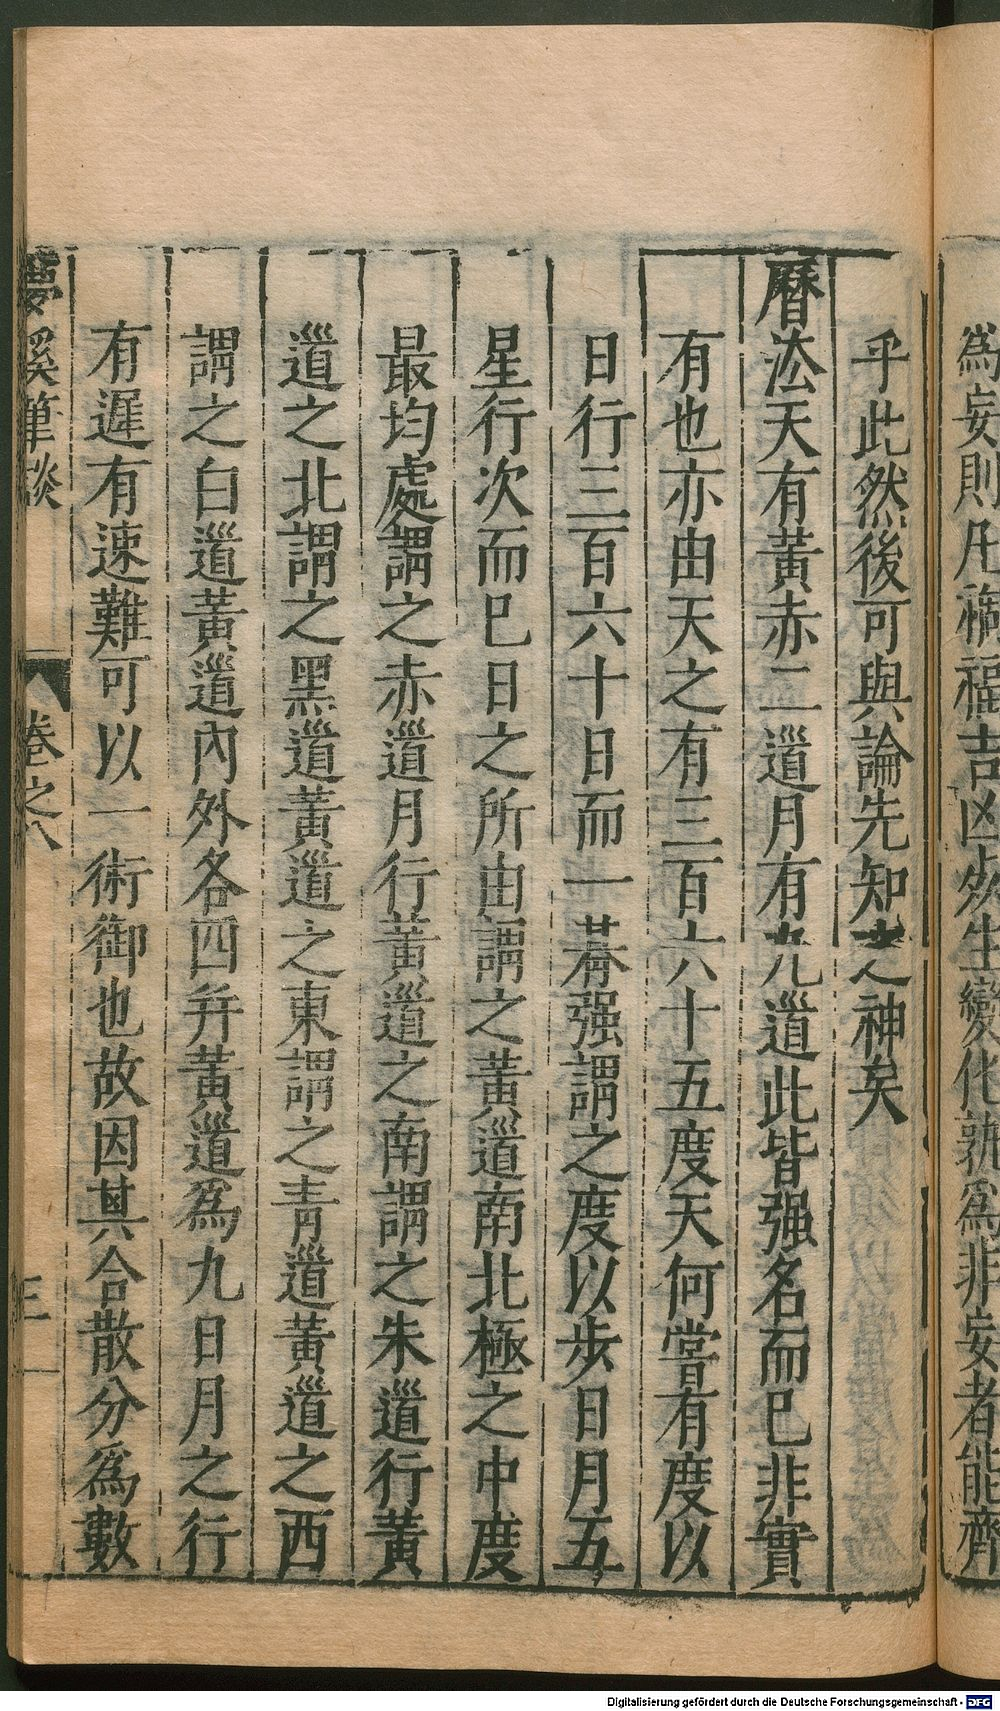 為妄則凡禍福吉凶死生變化孰為非妄者能齊
乎此然後可與論先知之神矣
曆法天有黃赤二道月有九道此皆强名而已非實
有也亦由天之有三百六十五度天何嘗有度以
日行三百六十日而一朞强謂之度以步日月五
星行次而已日之所由謂之黃道南北極之中度
最均處謂之赤道月行黃道之南謂之朱道行黃
道之北謂之黑道黃道之東謂之青道黃道之西
謂之白道黃道內外各四并黃道為九日月之行
有遲有速難可以一術御也故因其合散分為數
夢溪筆談 卷之八 三
Digitalisierung gefördert durch die Deutsche Forschungsgemeinschaft - DFG